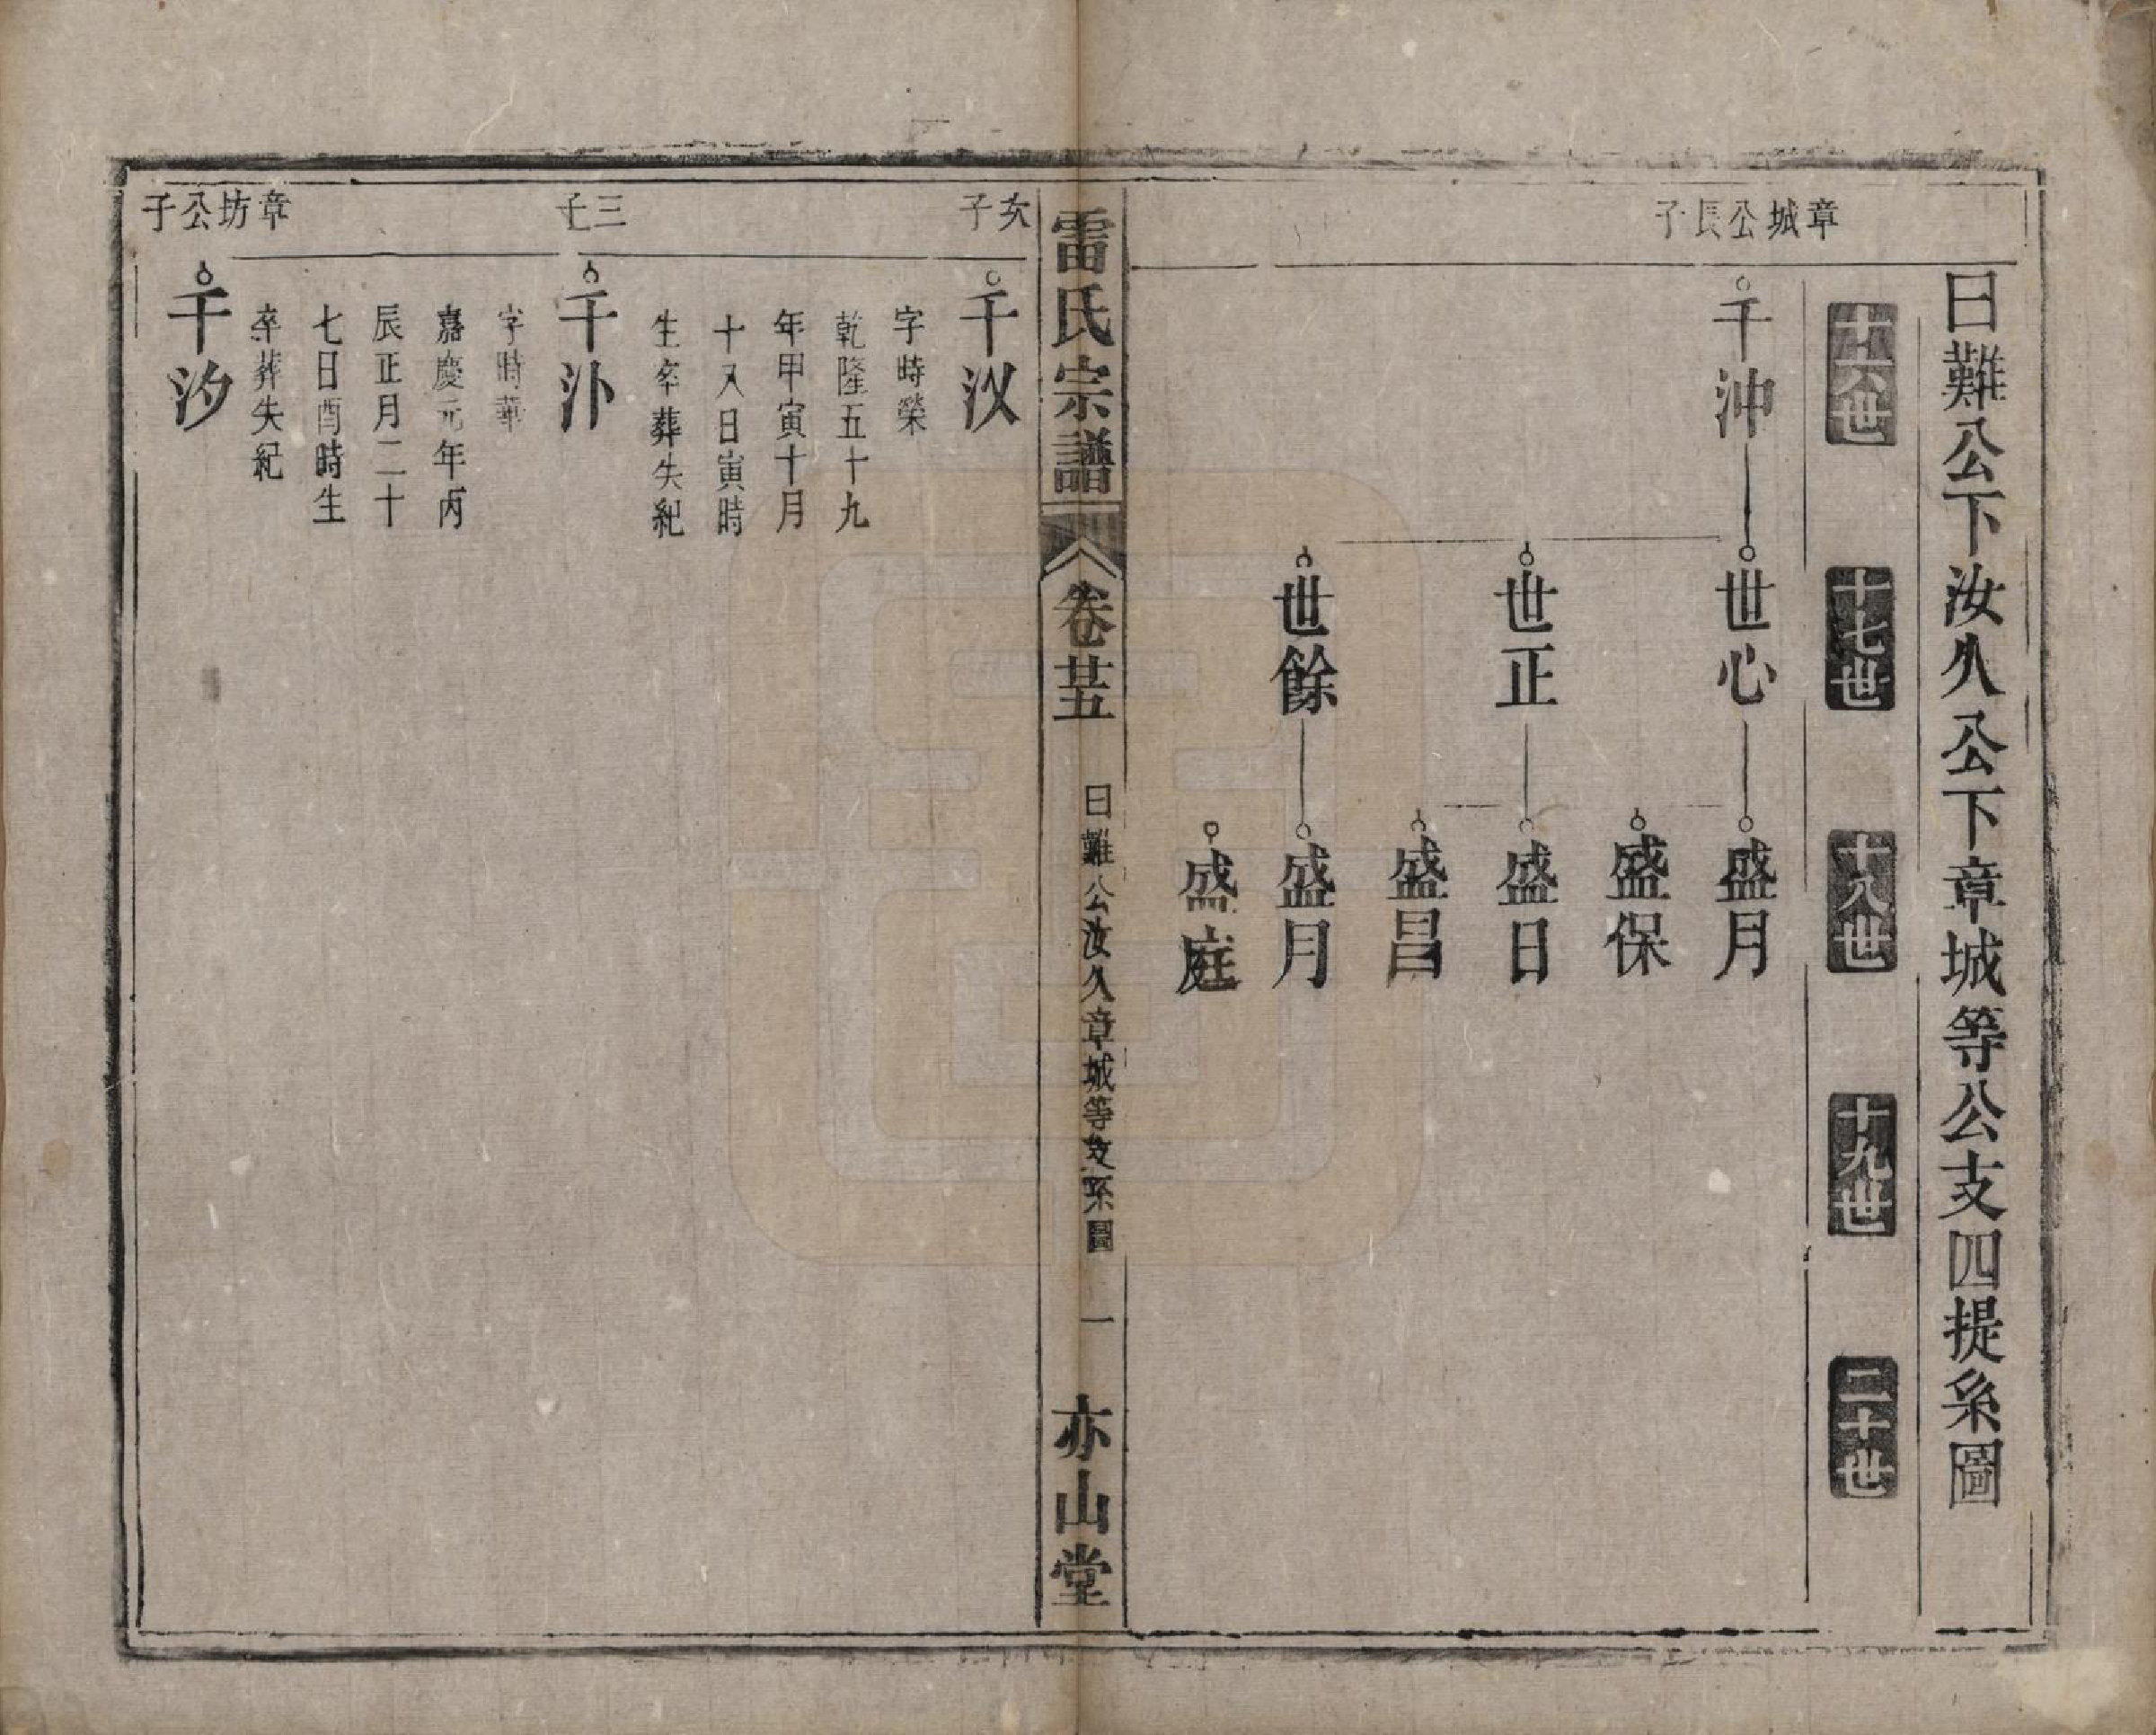 曰難公下汝久公下章城等公支四提系圖
十六世
十七世
十八世
十九世
二十世
章城公長子
千沖
世心
世正
世餘
盛月
盛保
盛日
盛昌
盛月
盛庭
雷氏宗譜
卷廿五
曰難公汝久章城等支系圖
一
亦山堂
次子
千汷
字時榮
乾隆五十九
年甲寅十月
十八日寅時
生卒葬失紀
三子
千汃
字時華
嘉慶元年丙
辰正月二十
七日酉時生
卒葬失紀
章坊公子
千汐